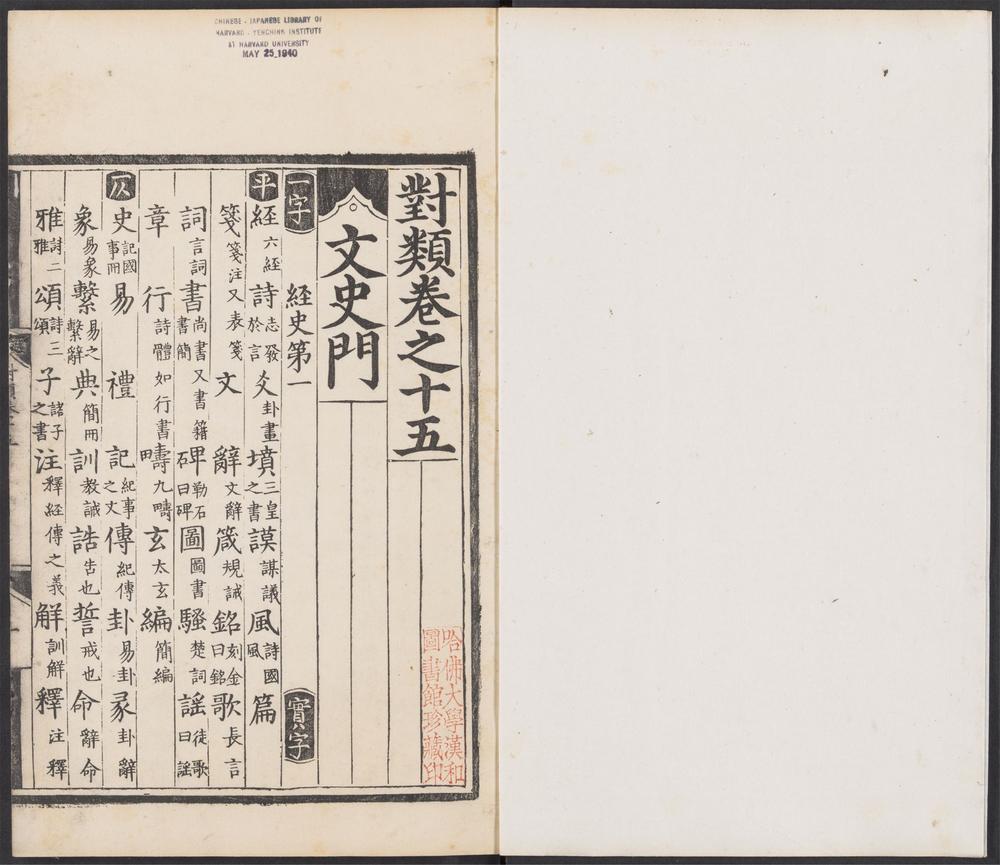 CHINESE - JAPANESE LIBRARY OF
HARVARD - YENCHING INSTITUTE
AT HARVARD UNIVERSITY
MAY 25 1940
對類卷之十五
哈佛大學漢和
圖書館珍藏印
文史門
一字 經史第一 實字
平 經六經 詩志發於言 爻卦畫 墳三皇之書 謨謀議 風詩國風 篇
箋箋注又表箋 文 辭文辭 箴規誡 銘刻金曰銘 歌長言
詞言詞 書尚書又書籍書簡 碑勒石曰碑 圖圖書 騷楚詞 謡徒歌曰謡
章 行詩體如行書 疇九疇 玄太玄 編簡編
仄 史記國事冊 易 禮 記紀事之文 傳紀傳 卦易卦 彖卦辭
象易象 繫易之繫辭 典簡冊 訓教誡 誥告也 誓戒也 命辭命
雅詩二雅 頌詩三頌 子諸子之書 注釋經傳之義 解訓解 釋注釋